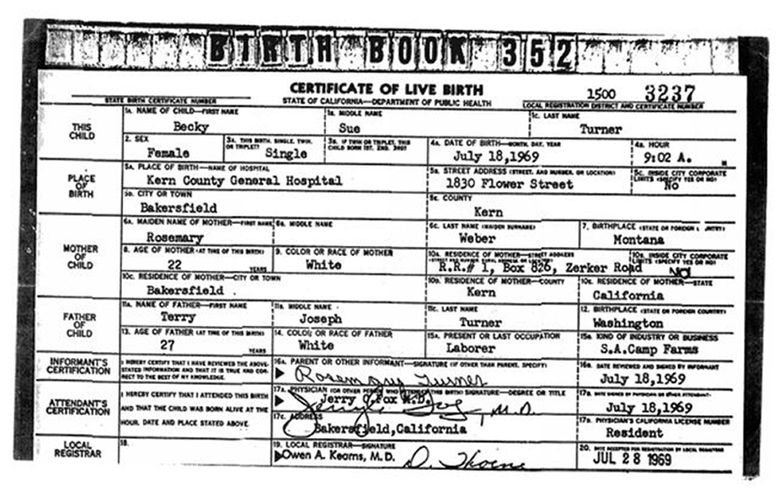 BIRTH BOOK 352
CERTIFICATE OF LIVE BIRTH
STATE OF CALIFORNIA—DEPARTMENT OF PUBLIC HEALTH
STATE BIRTH CERTIFICATE NUMBER
1500 3237
LOCAL REGISTRATION DISTRICT AND CERTIFICATE NUMBER
THIS CHILD
1A. NAME OF CHILD—FIRST NAME
Becky
MIDDLE NAME
Sue
1C. LAST NAME
Turner
2. SEX
Female
3A. THIS BIRTH, SINGLE, TWIN, OR TRIPLET?
Single
IF TWIN OR TRIPLET, THIS CHILD BORN 1ST, 2ND, 3RD?
4A. DATE OF BIRTH—MONTH, DAY, YEAR
July 18,1969
HOUR
9:02 A. M
PLACE OF BIRTH
5A. PLACE OF BIRTH—NAME OF HOSPITAL
Kern County General Hospital
STREET ADDRESS (STREET, AND NUMBER, OR LOCATION)
1830 Flower Street
5C. INSIDE CITY CORPORATE LIMITS (SPECIFY YES OR NO)
No
CITY OR TOWN
Bakersfield
COUNTY
Kern
MOTHER OF CHILD
6A. MAIDEN NAME OF MOTHER—FIRST NAME
Rosemary
MIDDLE NAME
6C. LAST NAME (MAIDEN SURNAME)
Weber
7. BIRTHPLACE (STATE OR FOREIGN
Montana
8. AGE OF MOTHER (AT TIME OF THIS BIRTH)
22 YEARS
9. COLOR OR RACE OF MOTHER
White
RESIDENCE OF MOTHER—STREET ADDRESS
R.R.# 1, Box 826, Zerker Road
INSIDE CITY CORPORATE LIMITS (SPECIFY YES OR NO)
NO
10C. RESIDENCE OF MOTHER—CITY OR TOWN
Bakersfield
RESIDENCE OF MOTHER—COUNTY
Kern
RESIDENCE OF MOTHER—STATE
California
FATHER OF CHILD
11A. NAME OF FATHER—FIRST NAME
Terry
MIDDLE NAME
Joseph
11C. LAST NAME
Turner
12. BIRTHPLACE (STATE OR FOREIGN COUNTRY)
Washington
13. AGE OF FATHER (AT TIME OF THIS BIRTH)
27 YEARS
14. COLOR OR RACE OF FATHER
White
15A. PRESENT OR LAST OCCUPATION
Laborer
KIND OF INDUSTRY OR BUSINESS
S.A.Camp Farms
INFORMANT'S CERTIFICATION
I HEREBY CERTIFY THAT I HAVE REVIEWED THE ABOVE STATED INFORMATION AND THAT IT IS TRUE AND CORRECT TO THE BEST OF MY KNOWLEDGE.
16A. PARENT OR OTHER INFORMANT—SIGNATURE (IF OTHER THAN PARENT, SPECIFY)
Rosemary Turner
DATE REVIEWED AND SIGNED BY INFORMANT
July 18,1969
ATTENDANT'S CERTIFICATION
I HEREBY CERTIFY THAT I ATTENDED THIS BIRTH AND THAT THE CHILD WAS BORN ALIVE AT THE HOUR, DATE AND PLACE STATED ABOVE.
17A. PHYSICIAN SIGNATURE—DEGREE OR TITLE
Jerry Fox
M.D.
July 18,1969
17C. ADDRESS
Bakersfield,California
PHYSICIAN'S CALIFORNIA LICENSE NUMBER
Resident
LOCAL REGISTRAR
18.
19. LOCAL REGISTRAR—SIGNATURE
Owen A. Kearns, M.D.
20. DATE ACCEPTED FOR REGISTRATION BY LOCAL REGISTRAR
JUL 28 1969